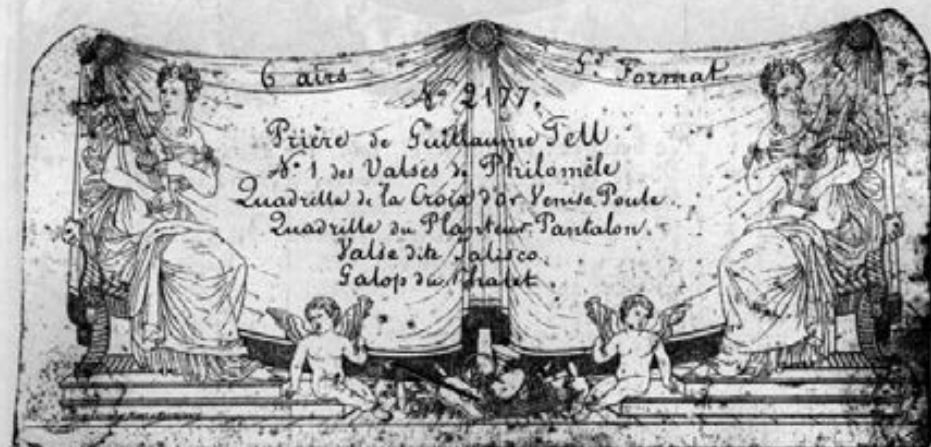 6 airs Gd. Format
No. 2177.
Prière de Guillaume Tell
No. 1 des Valses de Philomèle
Quadrille de la Croix d'or Venise. Poule.
Quadrille du Planteur. Pantalon.
Valse dite Jalisco.
Galop du Chalet.